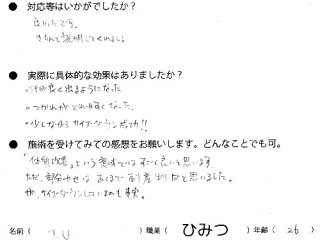 ● 対応等はいかがでしたか？
良かったです。
きちんと説明してくれるし。
● 実際に具体的な効果はありましたか？
・汗が良く出るようになった
・つかれがとれ易くなった
・少しながらサイズダウン成功!!
● 施術を受けてみての感想をお願いします。どんなことでも可。
「体質改善」という意味ではすごく良いと思います。
ただ、部分やせはあくまで副産物だと思いました。
サイズダウンしているのも事実。
名前（ T.U ）職業（ ひみつ ）年齢（ 26 ）